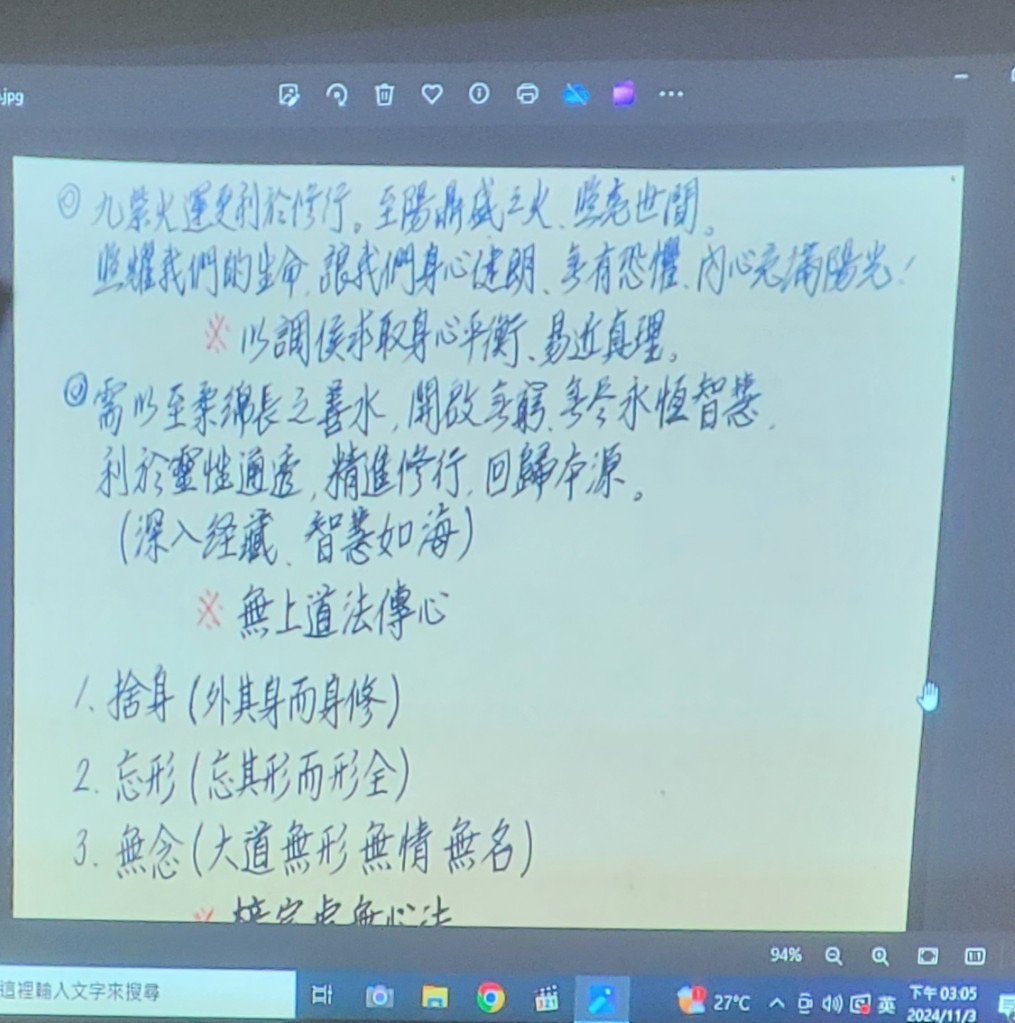 .jpg
◎ 九紫火運更利於修行。至陽鼎盛之火、照亮世間。
照耀我們的生命、讓我們身心健朗、無有恐懼、內心充滿陽光！
※ 以調候求取身心平衡、易近真理。
◎ 需以至柔綿長之善水，開啟無窮、無盡永恆智慧，
利於靈性通透，精進修行，回歸本源。
(深入经藏、智慧如海)
※ 無上道法傳心
1. 捨身 (外其身而身修)
2. 忘形 (忘其形而形全)
3. 無念 (大道無形無情無名)
虛無心法
94%
這裡輸入文字來搜尋
27°C
英
下午 03:05
2024/11/3